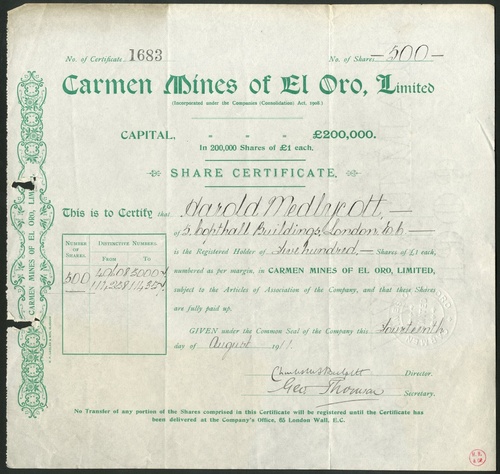 No. of Certificate 1683
No. of Shares —500—
Carmen Mines of El Oro, Limited
(Incorporated under the Companies (Consolidation) Act, 1908)
CAPITAL, - - - £200,000.
In 200,000 Shares of £1 each.
SHARE CERTIFICATE.
This is to Certify that Harold Medlycott,
of 5, Copthall Buildings, London E.C.
is the Registered Holder of Five hundred, Shares of £1 each,
numbered as per margin, in CARMEN MINES OF EL ORO, LIMITED,
subject to the Articles of Association of the Company, and that these Shares
are fully paid up.
NUMBER OF SHARES
DISTINCTIVE NUMBERS
FROM TO
500
GIVEN under the Common Seal of the Company this Fourteenth
day of August 1911
Director.
Geo Thomson
Secretary.
No Transfer of any portion of the Shares comprised in this Certificate will be registered until the Certificate has
been delivered at the Company's Office, 65 London Wall, E.C.
CARMEN MINES OF EL ORO, LIMITED